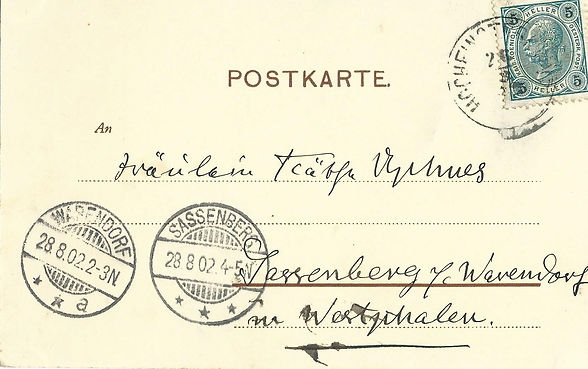 POSTKARTE.
5 HELLER 5
5 HELLER 5
An
Fräulein Käthe
WARENDORF
28.8.02.2-3N.
* * a
SASSENBERG
28 8 02.4-5N
* * *
Sassenberg b/ Warendorf
in Westphalen.